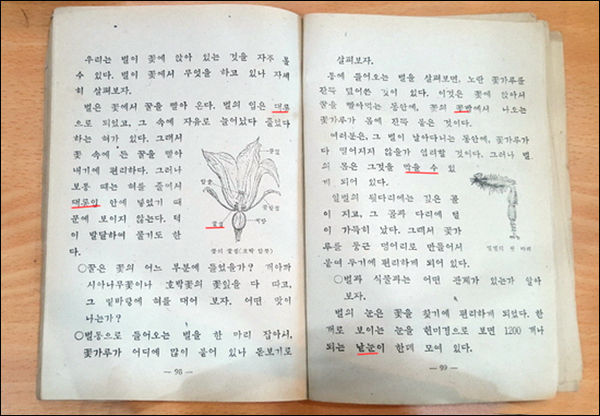 우리는 벌이 꽃에 앉아 있는 것을 자주 볼
수 있다. 벌이 꽃에서 무엇을 하고 있나 자세
히 살펴보자.
벌은 꽃에서 꿀을 빨아 온다. 벌의 입은 대롱
으로 되었고, 그 속에 자유로 늘어났다 줄었다
하는 혀가 있다. 그래서
꽃 속에 든 꿀을 빨아
내기에 편리하다. 그러나
보통 때는 혀를 줄여서
대롱입 안에 넣었기 때
문에 보이지 않는다. 턱
이 발달하여 물기도 한
다.
꽃잎
암술
꽃받침
꿀샘
씨방
꽃의 꿀샘(호박 암꽃)
○꿀은 꽃의 어느 부분에 들었을가? 개아까
시아나무꽃이나 호박꽃의 꽃잎을 다 따고,
그 밑바탕에 혀를 대여 보자. 어떤 맛이
나는가?
○벌통으로 들어오는 벌을 한 마리 잡아서,
꽃가루가 어디에 많이 붙어 있나 돋보기로
— 98 —
살펴보자.
통에 들어오는 벌을 살펴보면, 노란 꽃가루가
잔뜩 묻어 있다. 이것은 꽃에 앉아서
꿀을 빨아먹는 동안에, 꽃의 꽃밥에서 나오는
꽃가루가 몸에 잔뜩 묻은 것이다.
여러분은, 그 벌이 날아다니는 동안에, 꽃가루가
다 떨어지지 않을가 염려할 것이다. 그러나 벌
의 몸은 그것을 막을 수 있
게 되어 있다.
일벌의 뒷다리에는 깊은 홈
이 지고, 그 홈과 다리에 털
이 가득히 났다. 그래서 꽃가
루를 둥근 덩어리로 만들어서
붙여 두기에 편리하게 되어 있다.
일벌의 뒷 다리
○벌과 식물과는 어떤 관계가 있는가 알아
보자.
벌의 눈은 꽃을 찾기에 편리하게 되었다. 한
개로 보이는 눈을 현미경으로 보면 1200 개나
되는 낱눈이 한데 모여 있다.
— 99 —